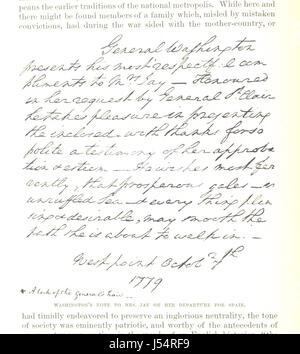 peans the earlier traditions of the national metropolis. While here and
there might be found members of a family which, misled by mistaken
convictions, had during the war sided with the mother-country, or
General Washington
presents his most respectful com
pliments to Mrs Jay — Honoured
in her request by General St Clair
he takes pleasure in presenting
the inclosed. with thanks for so
polite a testimony of her approba
tion & esteem. — He wishes most fer
vently, that prosperous gales — un
ruffled Sea — & every thing pleas
ing & desirable, may smooth the
path she is about to walk in. —
West point Octobr 7th
1779
* A lock of the General's hair
WASHINGTON'S NOTE TO MRS. JAY ON HER DEPARTURE FOR SPAIN.
had timidly endeavored to preserve an inglorious neutrality, the tone
of society was eminently patriotic, and worthy of the antecedents
alamy
J54RF9